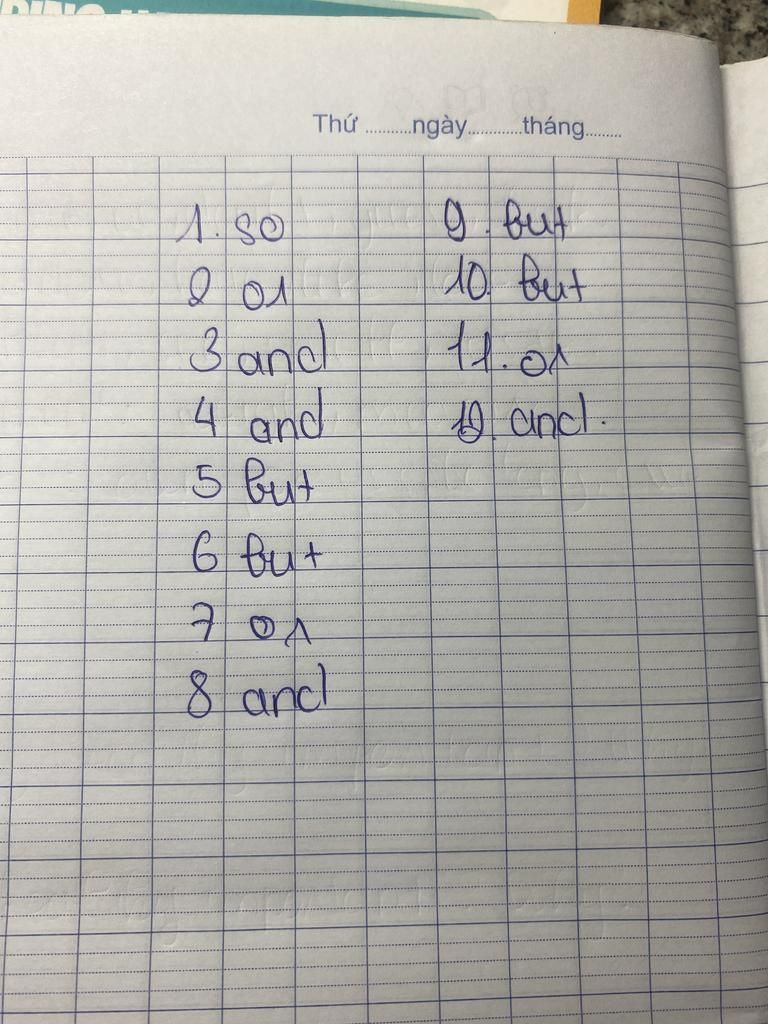 Thứ ..........ngày............tháng........
1. so
2 or
3 and
4 and
5 but
6 but
7 or
8 and
9. but
10. but
11. or
12. and.